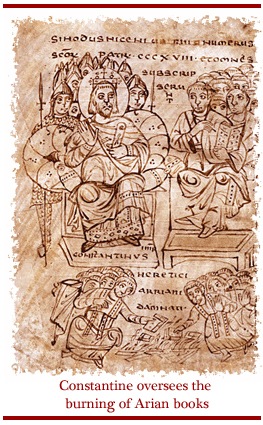 SINODUS NICENI NUMERUS
SCOR· PATR· CCCXVIII· ETOMNES
SUBSCRIP
SERU
CONSTANTINUS
HERETICI
ARRIANI
DAMNATI·
Constantine oversees the
burning of Arian books